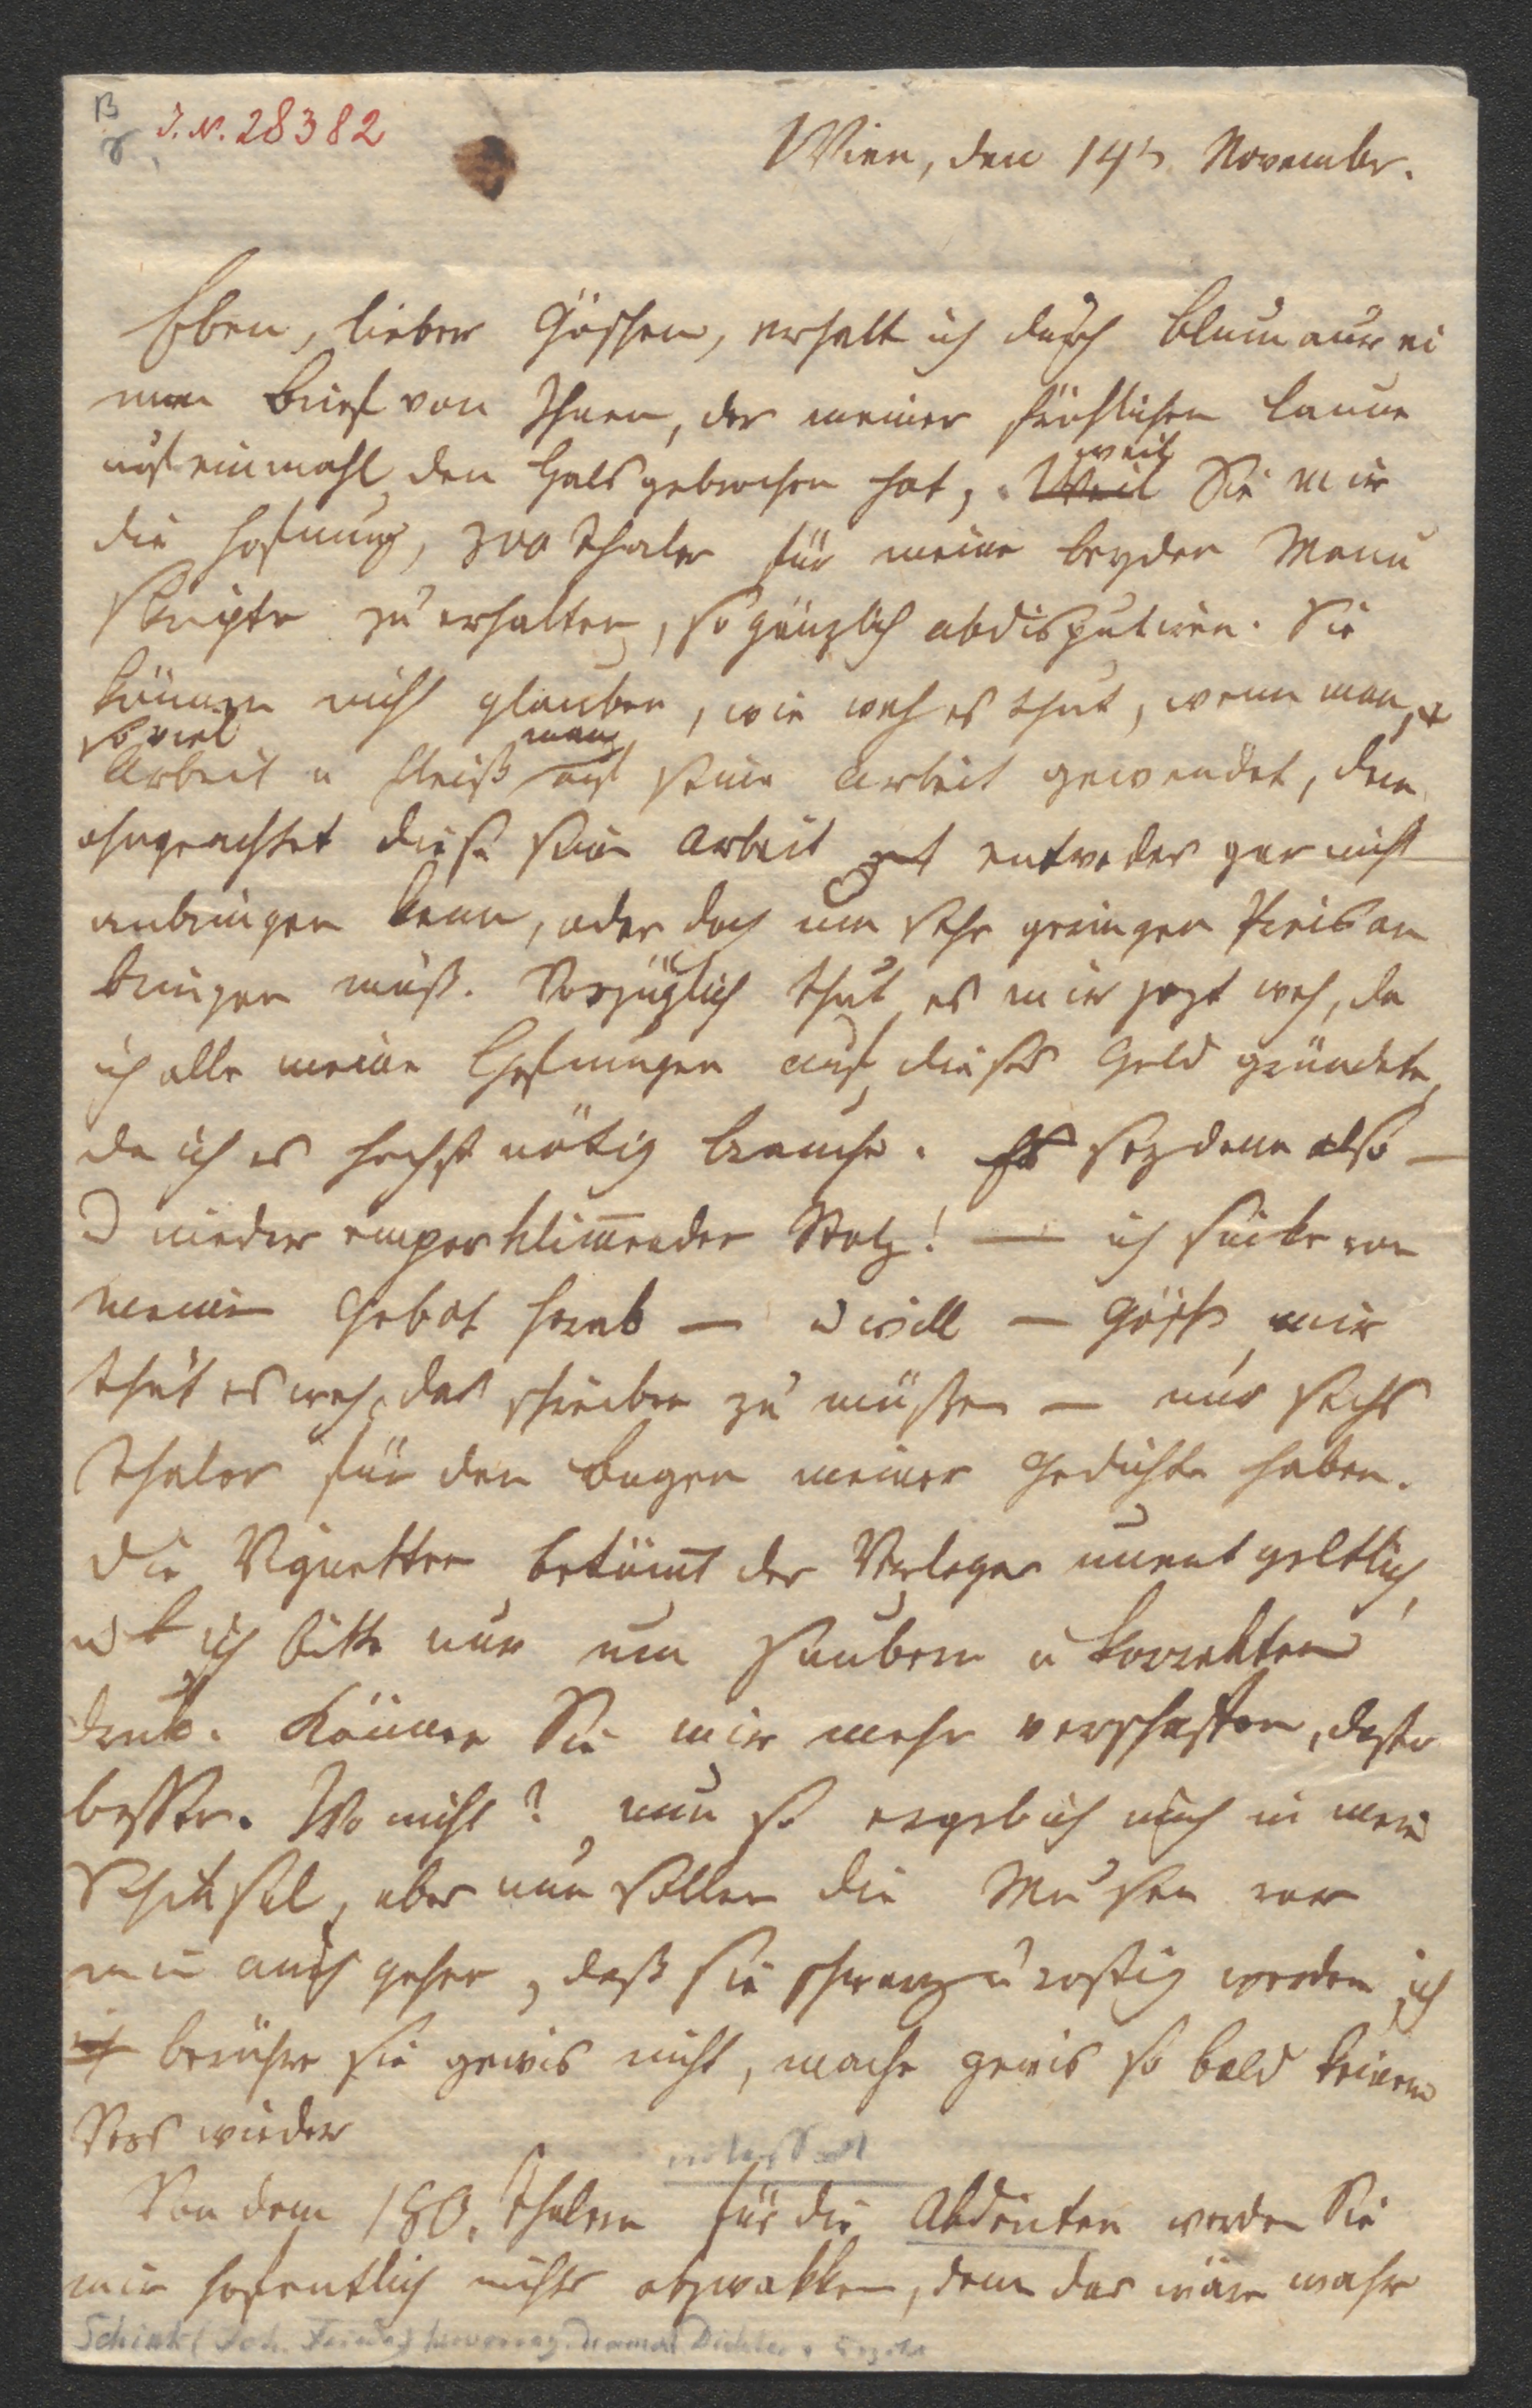 B
J. N. 28382
Wien, den 14t November.
Eben, lieber Göschen, erhalt ich durch Blumauer ei
nen Brief von Ihnen, der meiner fröhlichen Laune
auf einmahl den Hals gebrochen hat, Weil weil Sie mir
die Hofnung, 300 Thaler für meine beyden Manu
skripte zu erhalten, so gänzlich abdisputiren. Sie
können nicht glauben, wie weh es thut, wenn man,
so viel
Arbeit u Fleiß man auf seine Arbeit gewendet, dem
ohngeachtet diese seine Arbeit entweder gar nicht
anbringen kann, oder doch um sehr geringen Preis an
bringen muß. Vorzüglich thut es mir jezt weh, da
ich alle meine Hofnungen auf dieses Geld gründete,
da ich es höchst nötig brauche. Es sey denn also —
O nieder emporklimender Stolz! — ich sinke von
meinem Gebot herab — u will — Gösch mir
thut es weh, das schreiben zu müßen — nur sechs
Thaler für den Bogen meiner Gedichte haben.
Die Vignetten bekömt der Verleger unentgeltlich,
u ich bitte nur um saubern u korrekten
Druk. Können Sie mir mehr verschaffen, desto
besser. Wo nicht? nun so ergeb ich mich in mein
Schiksal, aber nun sollen die Musen von
mir auch gehen, daß sie schwarz u rostig werden ich
ich berühre sie gewis nicht, mache gewis so bald keinen
Vers wieder
Von dem 180. Thalern für die Abdenten werden Sie
mir hofentlich nichts abzwakken, denn das wäre mehr
Schink (Joh. Friedr.) hervorrag. dramat. Dichter u.